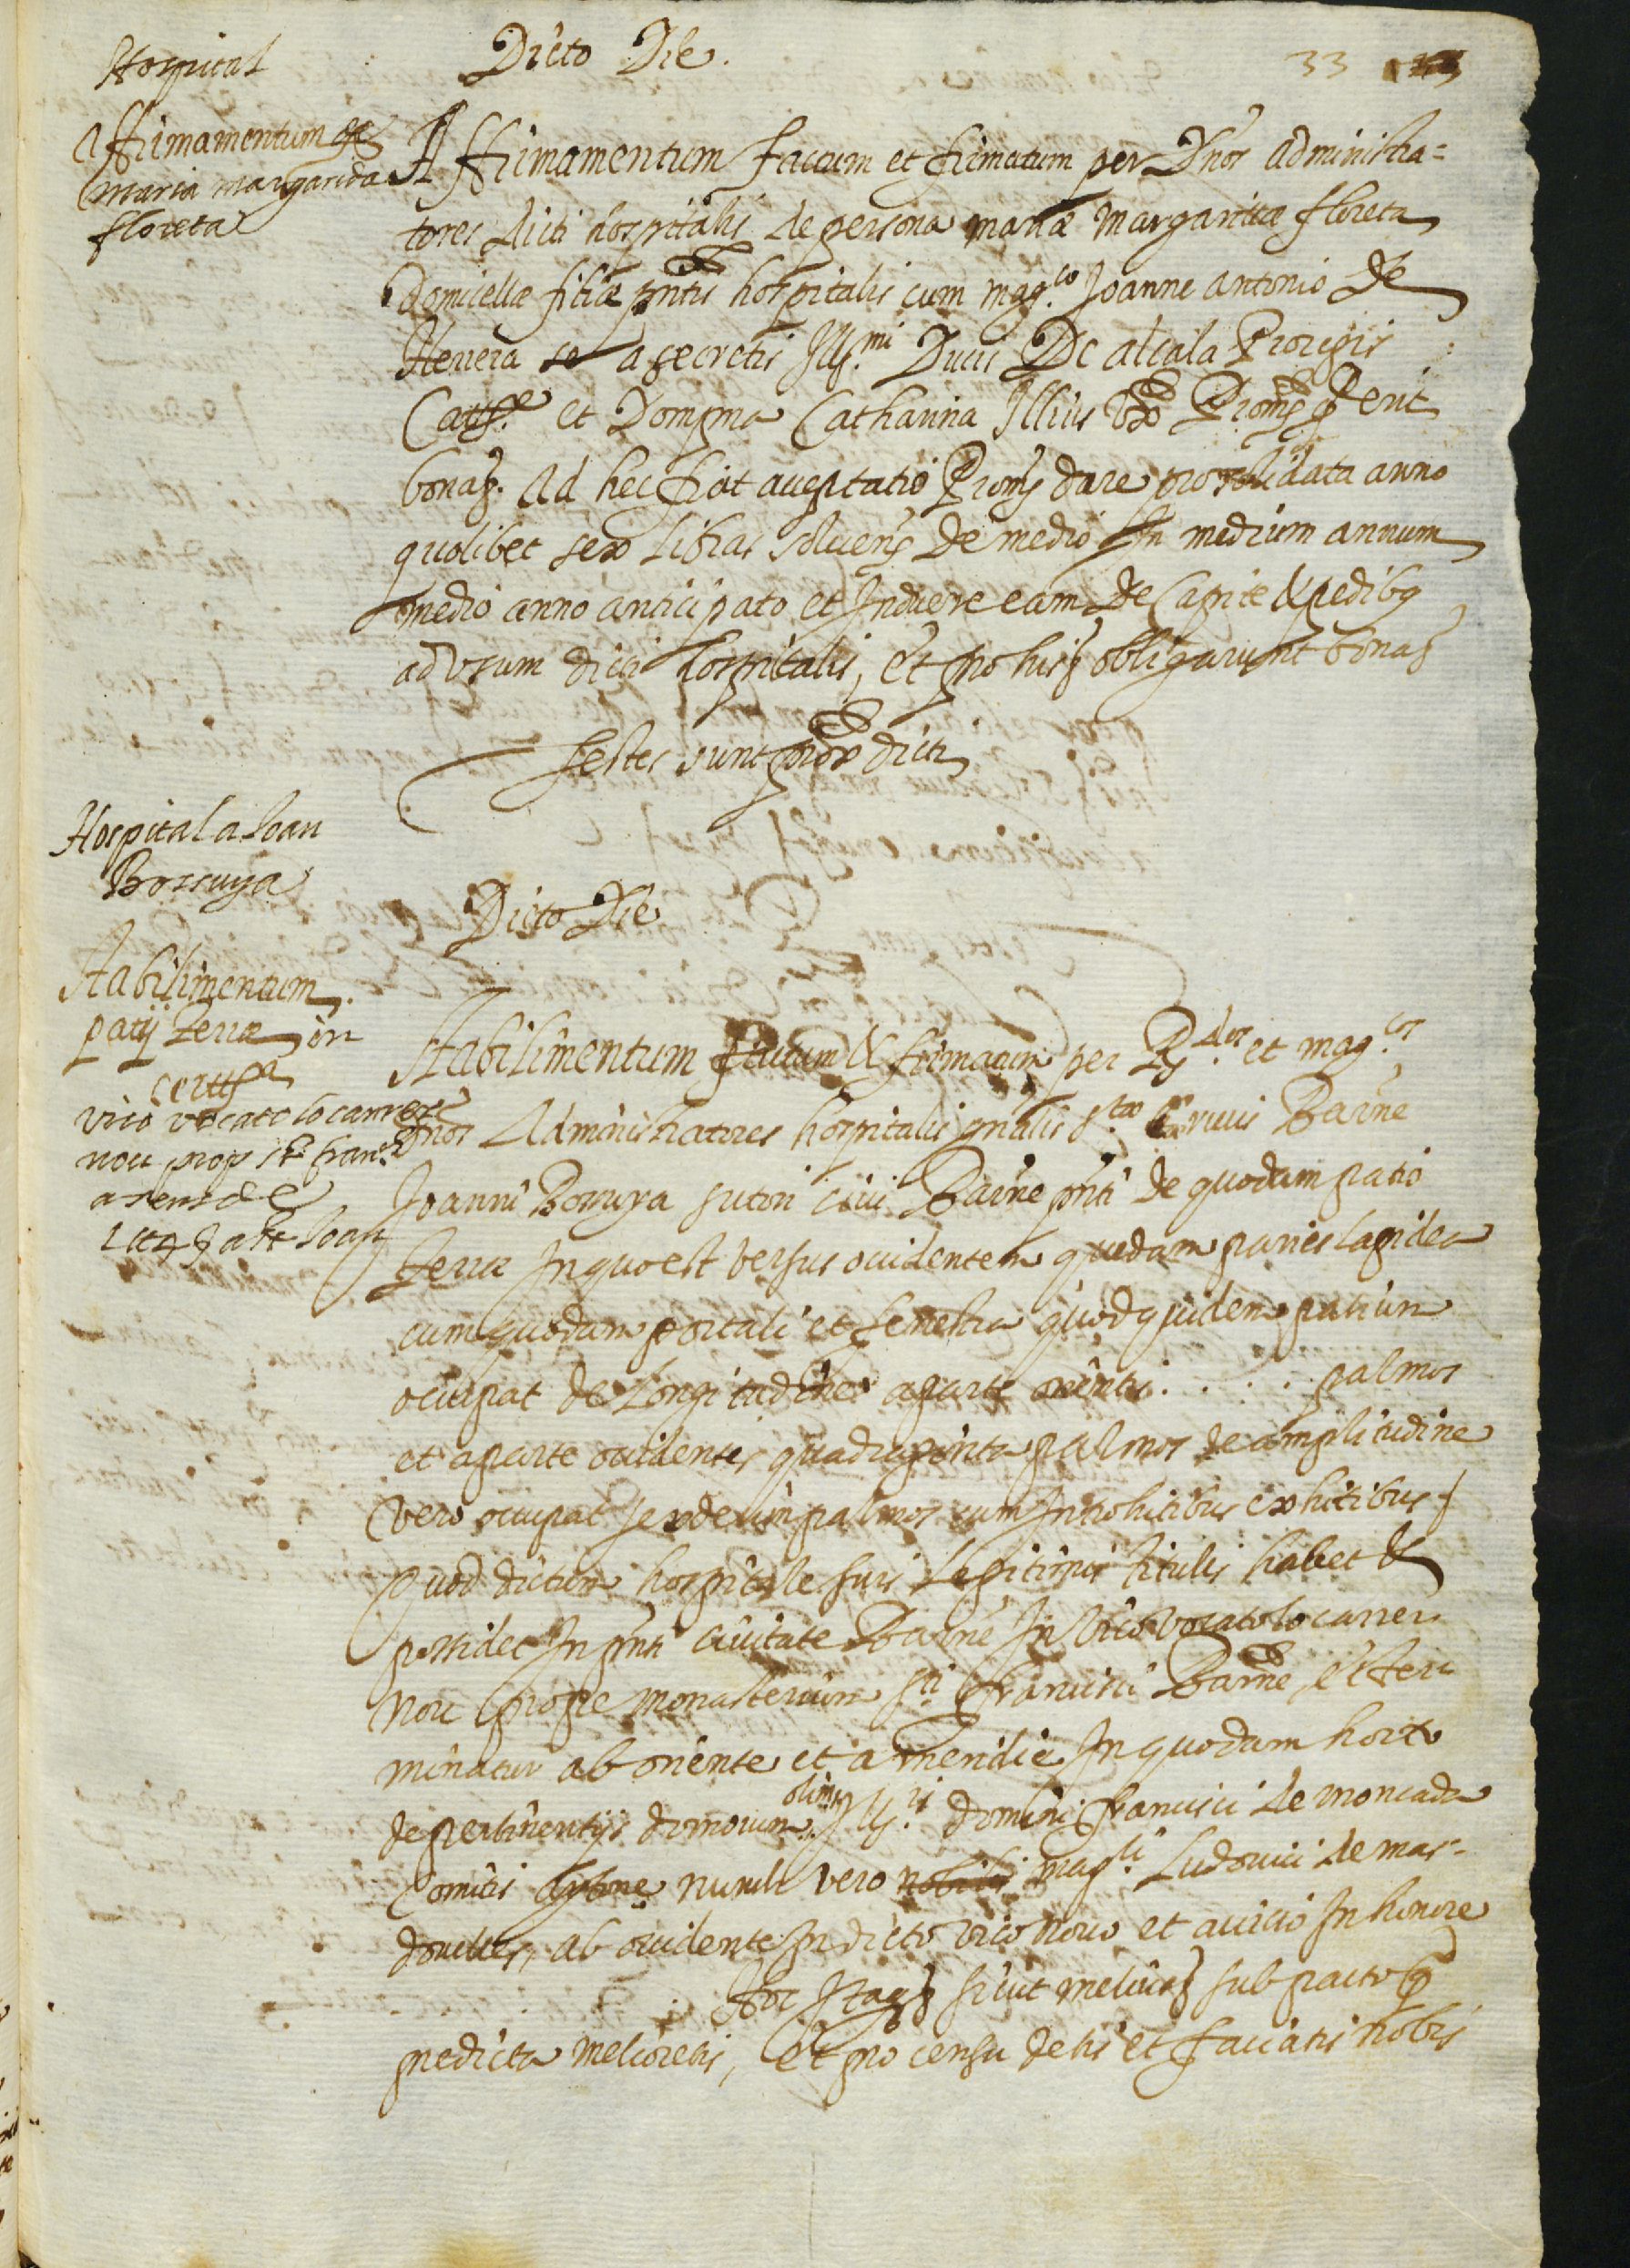 Hospital
Dicto Die.
33
Affirmamentum de
maria margarida
floreta
Affirmamentum factum et firmatum per Dnos administra=
tores dicti hospitalis de persona mariæ Margaritæ floreta
domicellæ filiæ pntis hospitalis cum mag.co Joanne antonio de
Herrera a secretis Ills.mi Ducis De alcala Proregis
et Dompna Catharina Illius Vxo Proms erit
bonas. Ad hec fiat acceptatio Proms dare pro solidata anno
quolibet sex libras solvens de medio In medium annum
medio anno anticipato et Induere eam de Capite & pedibq
ad vsum dicti hospitalis, et pro his obligarunt bonas
Testes sunt prox dicti
Hospital a Joan
Borruya
Dicto Die
Stabilimentum
patij terræ in
vico vocato lo carrer
nou prop st franc
a sens de
Stabilimentum factum & firmatum per Rdos et mag.cos
dnos Administratores hospitalis gnalis s.tæ Crucis Barne
Joanni Borruya sutori civi Barne pnti de quodam patio
terræ In quo est versus occidentem quedam paries lapidea
cum quodam portali et fenestra quod quidem patium
occupat de Longitudine a parte orientis . . . . . palmos
et a parte occidentis quadraginta palmos de amplitudine
vero occupat sexdecim palmos cum Introhitibus exhitibus
Quod dictum hospitale suis Legitimis titulis habet &
possidet In pnti civitate Barne In vico vocato lo carrer
Nou prope monasterium sti Francisci Barne, et ter
minatur ab oriente et a meridie In quodam horto
de pertinentijs domorum olim Ills.is domini francisci de moncada
Comitis Aytone nunch vero nobilis mag.ci Ludovici de mas-
dovelles, ab occidente In dicto vico novo et a circio In honore
. . . . Hoc Itaqz sicut melius sub pacto q
predicta melioretis, et pro censu detis et faciatis nobis